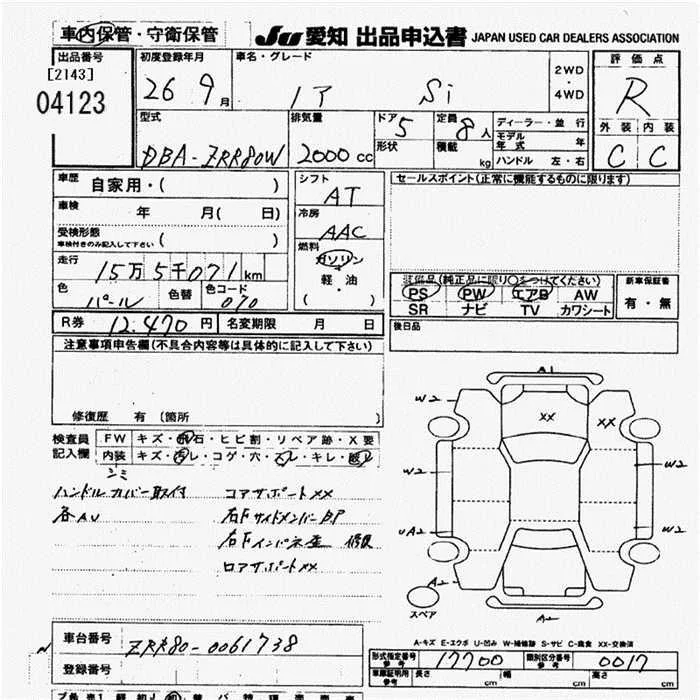 車内保管・守衛保管 JU 愛知 出品申込書 JAPAN USED CAR DEALERS ASSOCIATION
出品番号 初度登録年月 車名・グレード 評価点
[2143] 2WD
04123 26 9月 ノア Si 4WD R
外装 内装
型式 排気量 ドア 定員 ディーラー・並行
DBA-ZRR80W 2000cc 5 8人 モデル年式 年 C C
形状 積載 kg ハンドル 左・右
車歴 自家用・( ) シフト セールスポイント(正常に機能するものに限ります)
AT
車検 年 月( 日) 冷房
AAC
受検形態
車検付きのみ記入して下さい ( ) 燃料
走行 ガソリン
15万5千071km 軽油 装備品(純正品に限り○をつけてください) 新車保証書
色 色替 色コード ・ PS PW エアB AW 有・無
パール 070 ( ) SR ナビ TV カワシート
R券 12,470円 名変期限 月 日 後日品
注意事項申告欄(不具合内容等は具体的に記入して下さい)
修復歴 有(箇所 )
検査員 FW キズ・飛石・ヒビ割・リペア跡・X要
記入欄 内装 キズ・汚レ・コゲ・穴・スレ・キレ・破レ
シミ
ハンドルカバー取付 コアサポートXX
各AU 右Fサイドメンバー
右Fインパネ 修復
ロアサポートXX
A1
W2 W2
XX XX
W2 W2
UA2 W2
A2
A2
スペア
A-キズ E-エクボ U-凹み W-補修跡 S-サビ C-腐食 XX-交換済
車台番号 ZRR80-0061738
型式指定番号 参考 17700 類別区分番号 参考 0017
登録番号
車庫証明用 参考 長さ cm 幅 cm 高さ cm